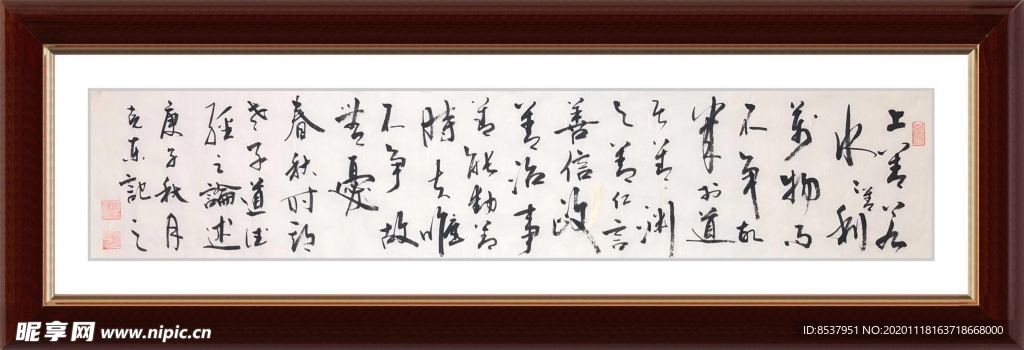 上善若
水〻善利
萬物而
不争故
於道
善渊
善仁言
善信政
善治事
善能動善
時夫唯
不争故
無憂
春秋时期
老子道德
經之論述
庚子秋月
克东記之
昵享网 www.nipic.cn
ID:8537951 NO:20201118163718668000